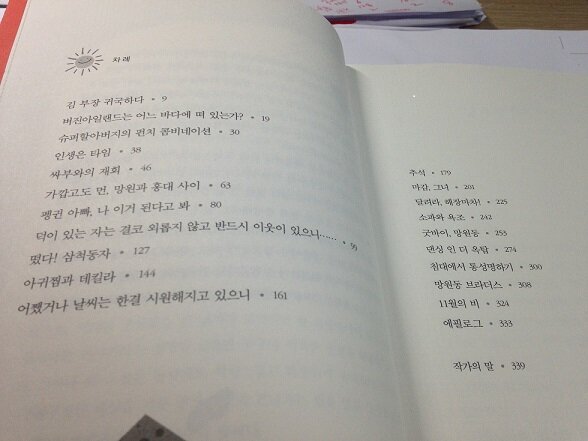 차례
김 부장 귀국하다 • 9
버진아일랜드는 어느 바다에 떠 있는가? • 19
슈퍼할아버지의 펀치 콤비네이션 • 30
인생은 타임 • 38
싸부와의 재회 • 46
가깝고도 먼, 망원과 홍대 사이 • 63
펭귄 아빠, 나 이거 된다고 봐 • 80
덕이 있는 자는 결코 외롭지 않고 반드시 이웃이 있으니…… • 99
떴다! 삼척동자 • 127
아귀찜과 데킬라 • 144
어쨌거나 날씨는 한결 시원해지고 있으니 • 161
추석 • 179
마감, 그녀 • 201
달려라, 해장마차! • 225
소파와 욕조 • 242
굿바이, 망원동 • 253
댄싱 인 더 옥탑 • 274
침대에서 통성명하기 • 300
망원동 브라더스 • 308
11월의 비 • 324
에필로그 • 333
작가의 말 • 339